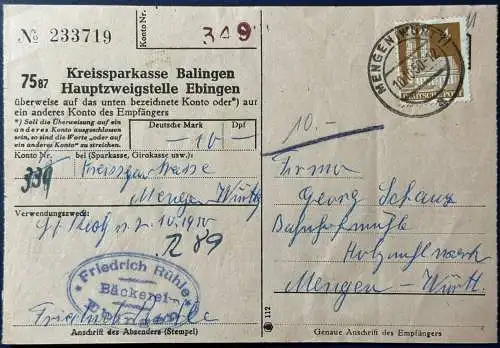 № 233719
Konto Nr.
349
75 87
Kreissparkasse Balingen
Hauptzweigstelle Ebingen
überweise auf das unten bezeichnete Konto oder*) auf
ein anderes Konto des Empfängers
*) Soll die Überweisung auf ein
anderes Konto ausgeschlossen
sein, so sind die Worte „oder auf
ein anderes Konto“ zu streichen.
Deutsche Mark
Dpf
- 10 -
Konto Nr.
bei (Sparkasse, Girokasse usw.):
339
Kreissparkasse
Mengen Württ
Verwendungszweck:
R 89
Friedrich Rühle
Bäckerei
Anschrift des Absenders (Stempel)
MENGEN (WÜRTT)
10.-
Firma
Georg Schanz
Bahnhofmühle
Mengen - Württ.
112
Genaue Anschrift des Empfängers